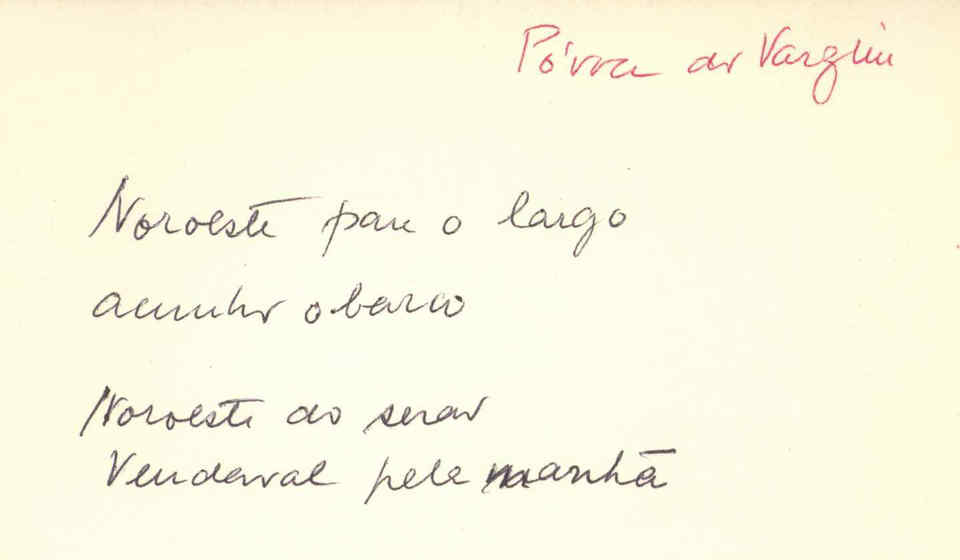 Póvoa do Varzim
Noroeste para o largo
o barco
Noroeste do serão
Vendaval pela manhã